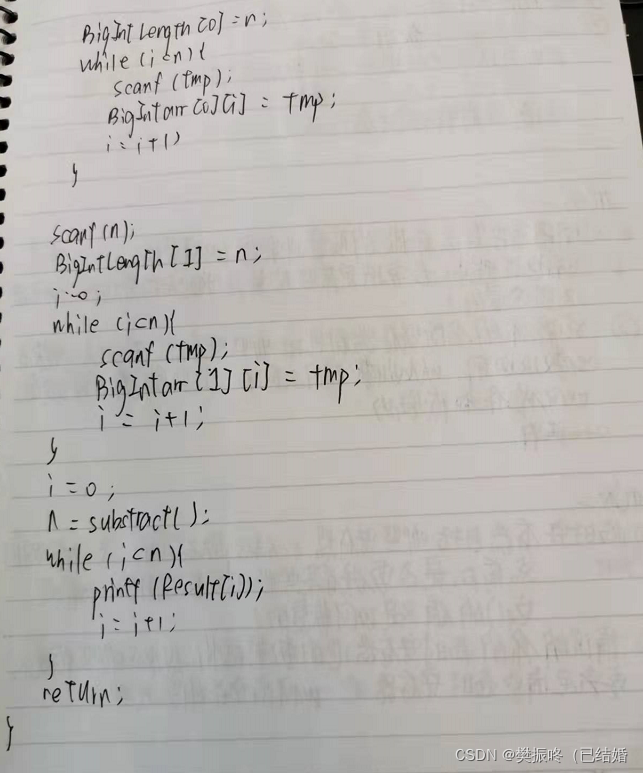 BigIntLength[0]=n;
while (i<n){
scanf(tmp);
BigIntarr[0][i] = tmp;
i=i+1)
}
scanf(n);
BigIntLength[1] = n;
i=0;
while (i<n){
scanf(tmp);
BigIntarr[1][i] = tmp;
i = i+1;
}
i=0;
n=substract();
while (i<n){
printf(Result[i]);
i=i+1;
}
return;
}
CSDN @樊振咚(已结婚